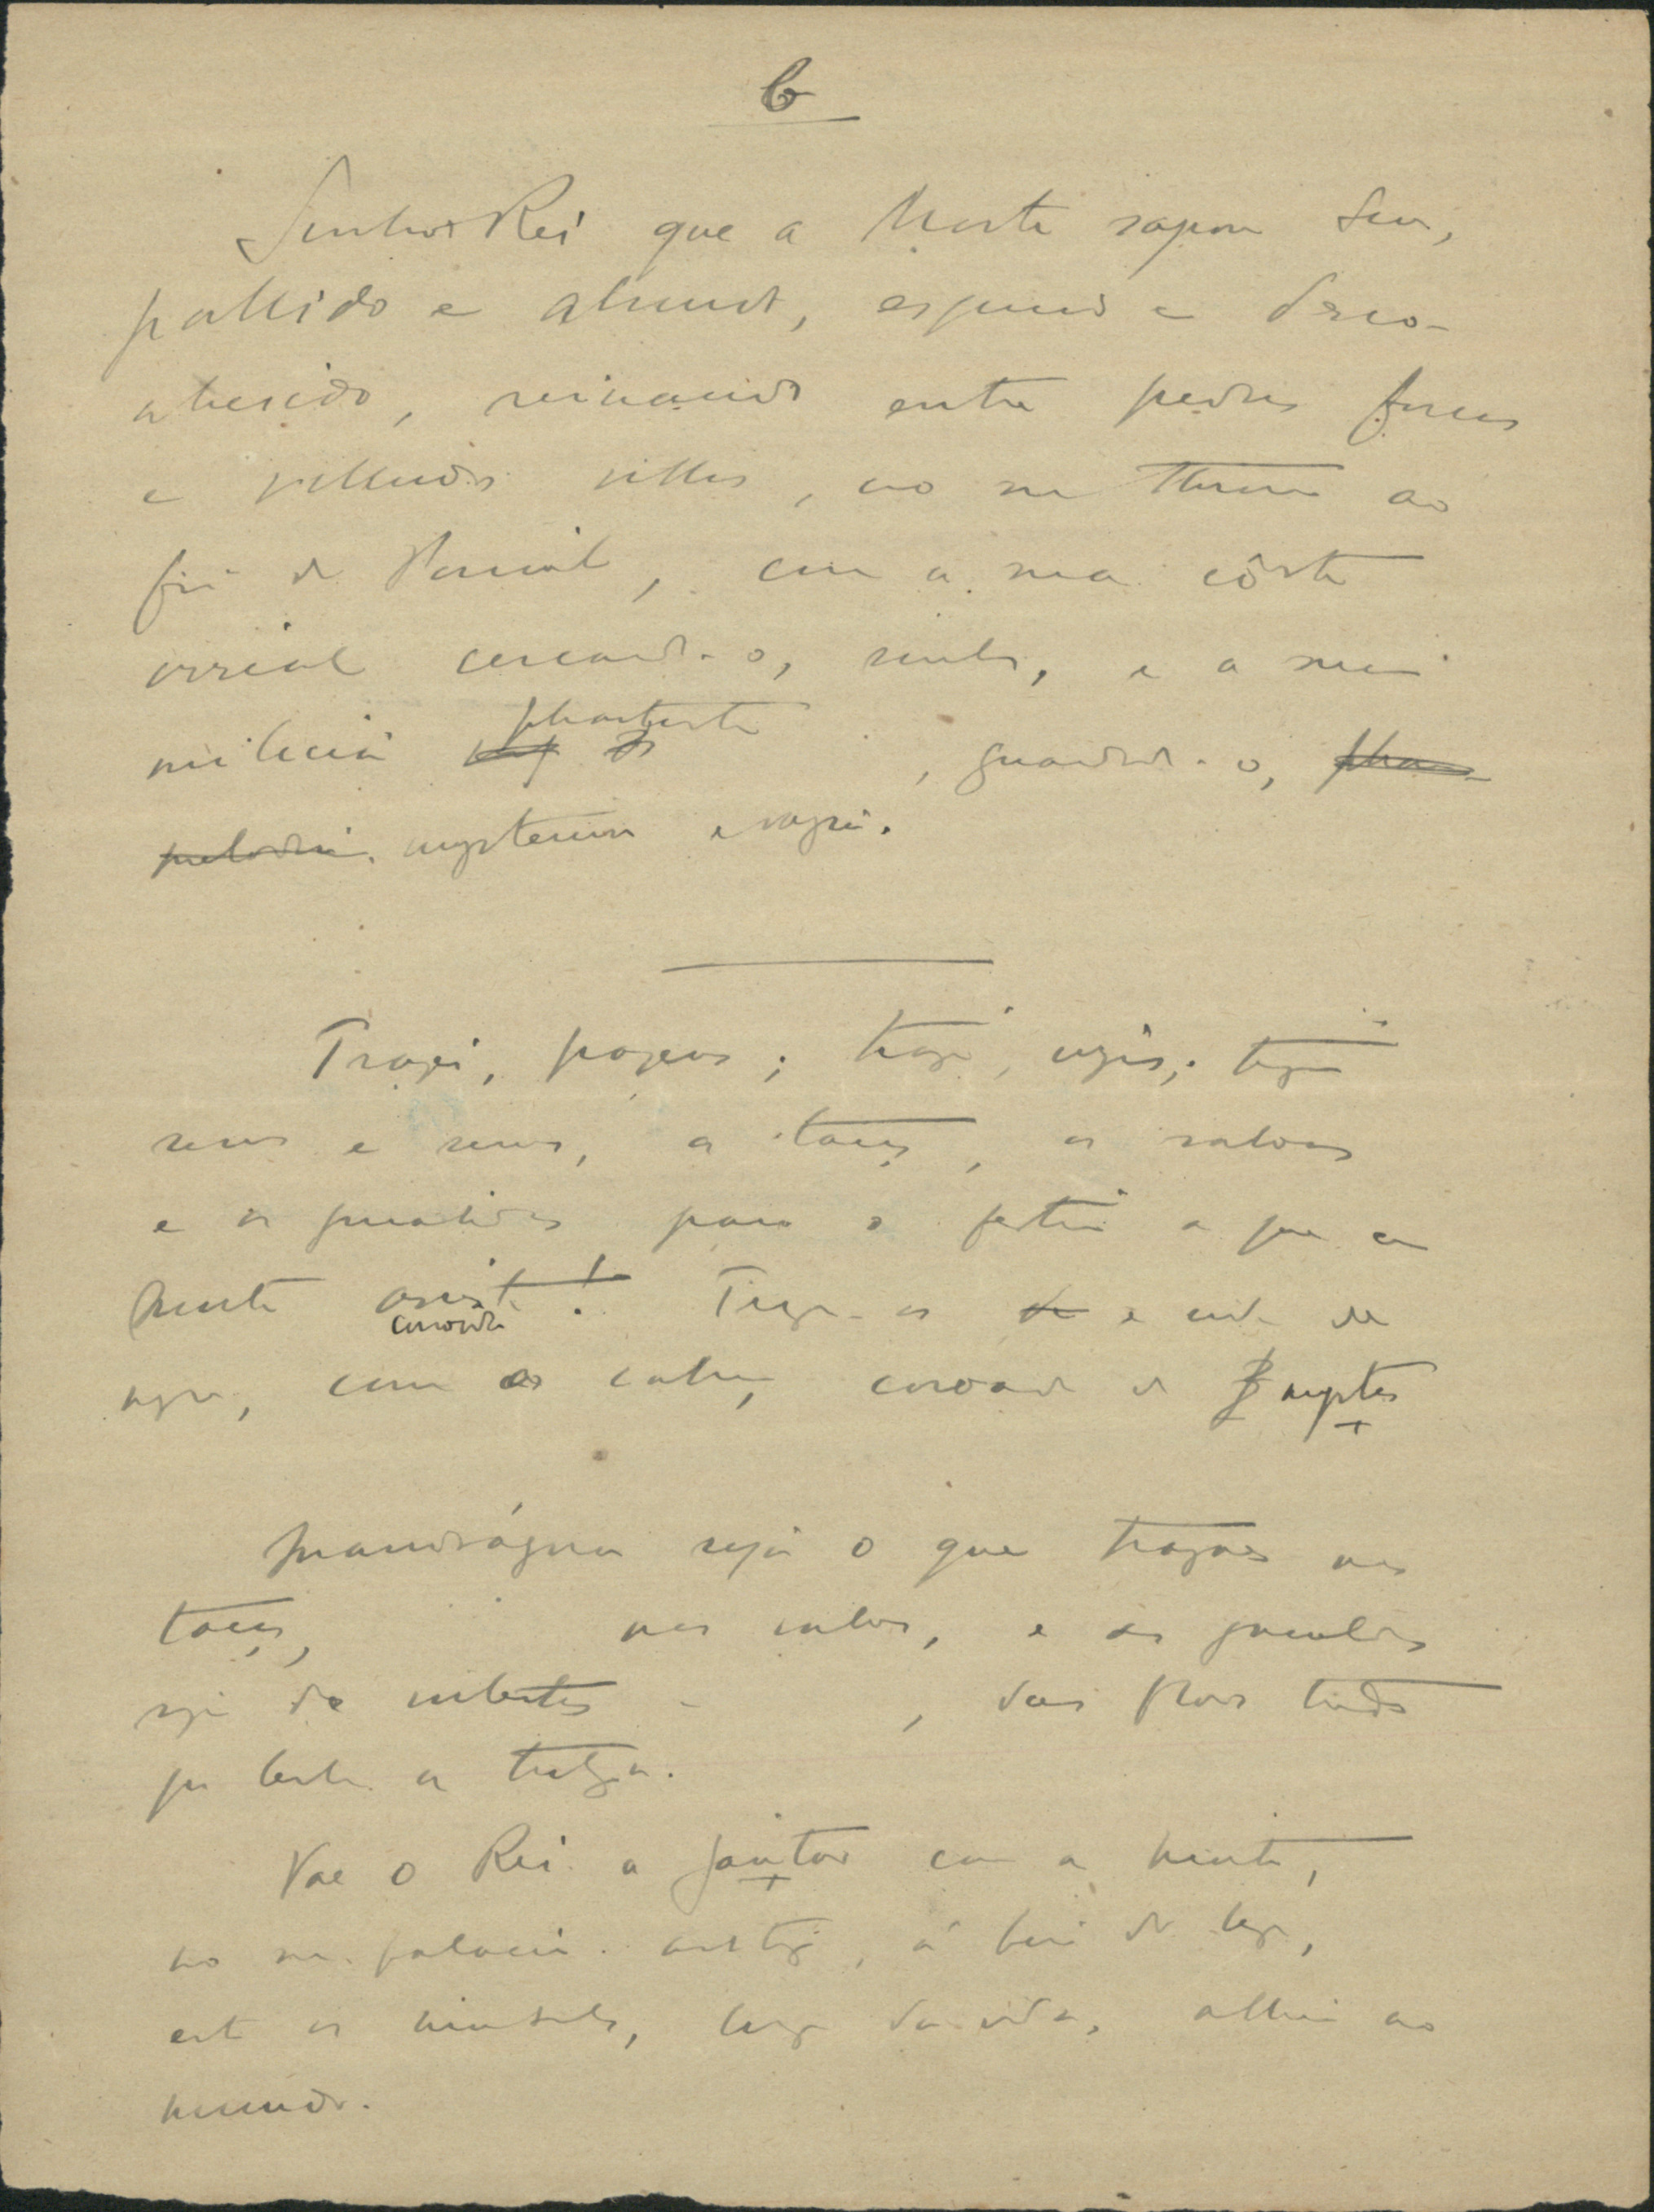 6
Senhor Rei que a Morte sagrou Seu,
pallido e absurdo, esquecido e desco-
nhecido, reinando entre pedras foscas
e velludos velhos, no seu throno ao
fim do Possivel, com a sua côrte
irreal cercando-o, sombras, e a sua
phantastica
milicia , guardando-o,
mysteriosa e vazia.
Trazei, pagens; trazei, virgens; trazei,
servos e servas, as taças, as salvas
e as grinaldas para o festim a que a
Morte assiste! Trazei-as e vinde de
negro, com as cabeças coroadas de myrtos
Mandrágora seja o que tragaes nas
taças, nas salvas, e as grinaldas
sejam de violetas , das flores todas
que lembrem a tristeza.
Vae o Rei a jantar com a Morte,
no seu palacio antigo, á beira do lago,
entre as montanhas, longe da vida, alheio ao
mundo.